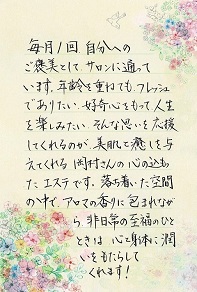 毎月1回 自分への
ご褒美として サロンに通って
います。年齢を重ねても、フレッシュ
でありたい 好奇心をもって人生
を楽しみたい そんな思いを応援
してくれるのが、美肌と癒しを与
えてくれる 岡村さんの心の込も
た エステです。落ち着いた空間
の中で、アロマの香りに包まれなが
ら 非日常の至福のひと
ときは 心と身体に潤
いをもたらして
くれます!